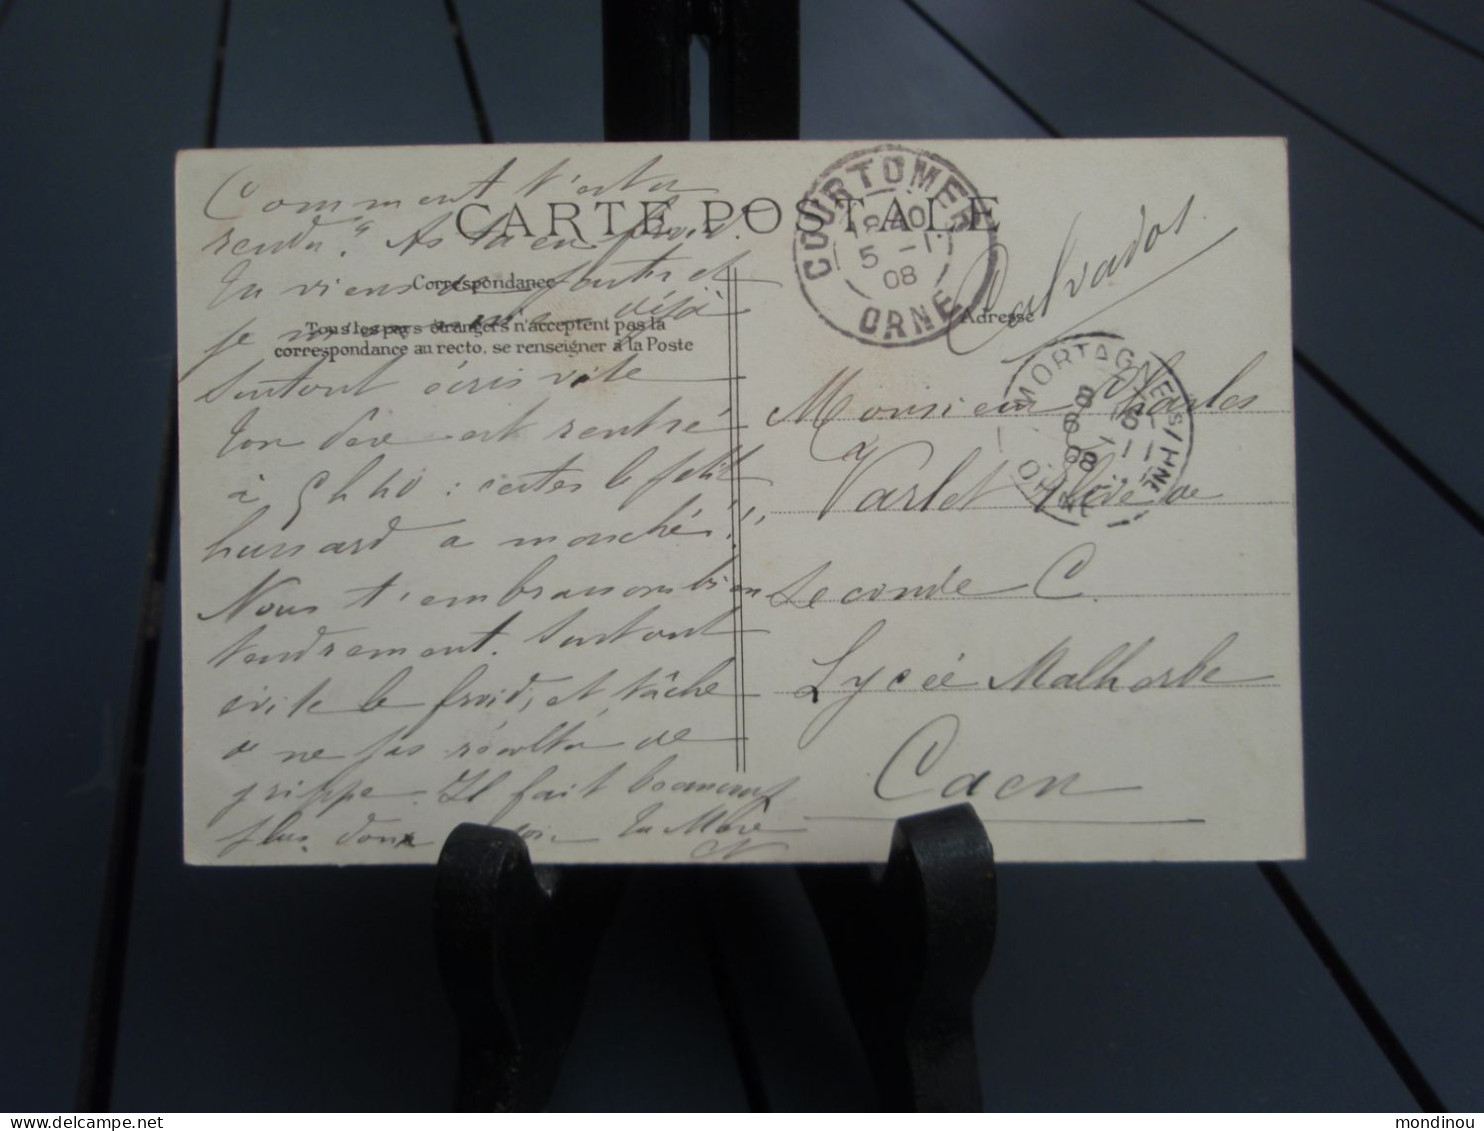 Comment t'es-tu
rendu ? As tu eu froid.
CARTE POSTALE
Tu viens de partir et
Correspondance
je déjà
Tous les pays étrangers n'acceptent pas la
correspondance au recto, se renseigner à la Poste
Surtout écris vite
ton Père est rentré
à 5h40 : certes le petit
hussard a marché !!
Nous t'embrassons bien
tendrement. Surtout
évite le froid, et tâche
de ne pas récolter de
grippe. Il fait beaucoup
plus doux soir Ta Mère
COURTOMER
18 40
5 -1
08
ORNE
Calvados
Adresse
MORTAGNE S/HNE
ORNE
08
Monsieur Charles
Varlet Élève de
Seconde C.
Lycée Malherbe
Caen
mondinou